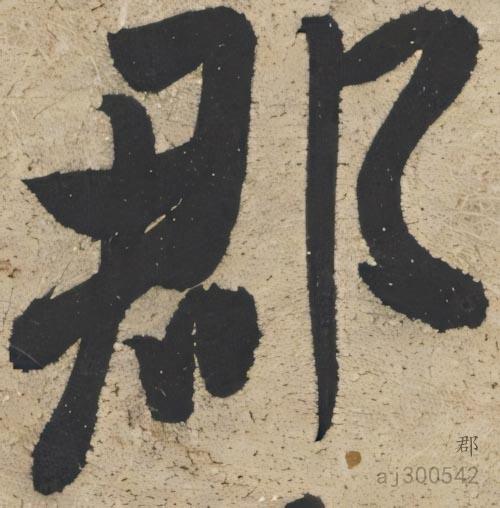 郡
郡
aj300542